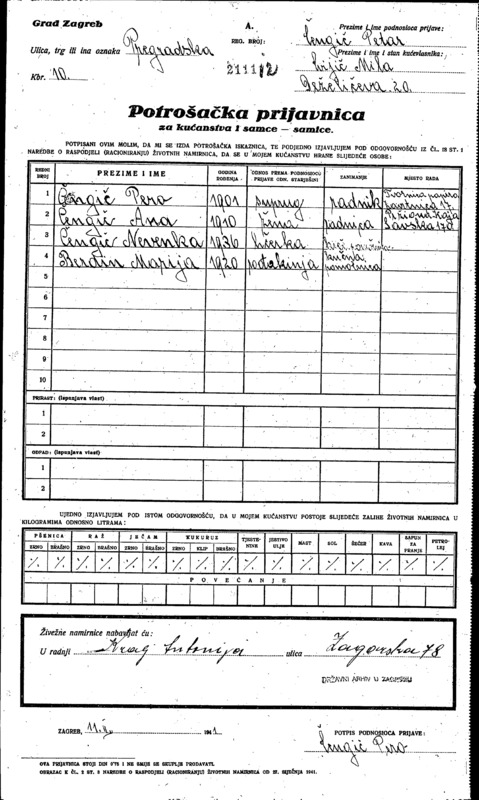 Grad Zagreb
A.
Prezime i ime podnosioca prijave:
Čengić Petar
Ulica, trg ili ina oznaka Pregradska
REG. BROJ:
Prezime i ime i stan kućevlasnika:
Mila
Kbr. 10.
211112
Deželićeva 20
Potrošačka prijavnica
za kućanstva i samce — samice.
POTPISANI OVIM MOLIM, DA MI SE IZDA POTROŠAČKA ISKAZNICA, TE PODJEDNO IZJAVLJUJEM POD ODGOVORNOŠĆU IZ ČL. 18 ST. 1
NAREDBE O RASPODJELI (RACIONIRANJU) ŽIVOTNIH NAMIRNICA, DA SE U MOJEM KUĆANSTVU HRANE SLIJEDEĆE OSOBE:
REDNI BROJ PREZIME I IME GODINA ROĐENJA: ODNOS PREMA PODNOSIOCU PRIJAVE ODN. STARJEŠINI ZANIMANJE MJESTO RADA
1 Čengić Pero 1901 suprug radnik Tvornica papira
2 Čengić Ana 1910 žena Savska
3 Čengić Nevenka 1936 kćerka
4 Berdin Marija 1920 kućna pomoćnica
5
6
7
8
9
10
PRIRAST: (ispunjava vlast)
1
2
ODPAD: (ispunjava vlast)
1
2
UJEDNO IZJAVLJUJEM POD ISTOM ODGOVORNOŠĆU, DA U MOJEM KUĆANSTVU POSTOJE SLIJEDEĆE ZALIHE ŽIVOTNIH NAMIRNICA U
KILOGRAMIMA ODNOSNO LITRAMA:
PŠENICA RAŽ JEČAM KUKURUZ TJESTENINE JESTIVO ULJE MAST SOL ŠEĆER KAVA SAPUN ZA PRANJE PETROLEJ
ZRNO BRAŠNO ZRNO BRAŠNO ZRNO BRAŠNO ZRNO KLIP BRAŠNO
POVEĆANJE
Živežne namirnice nabavljat ću:
U radnji Krag Antonija ulica Zagorska 78
DRŽAVNI ARHIV U ZAGREBU
ZAGREB, 11. 1941
POTPIS PODNOSIOCA PRIJAVE:
Čengić Pero
OVA PRIJAVNICA STOJI DIN 0.75 I NE SMIJE SE SKUPLJE PRODAVATI.
OBRAZAC K ČL. 2 ST. 2 NAREDBE O RASPODJELI (RACIONIRANJU) ŽIVOTNIH NAMIRNICA OD 25. SIJEČNJA 1941.